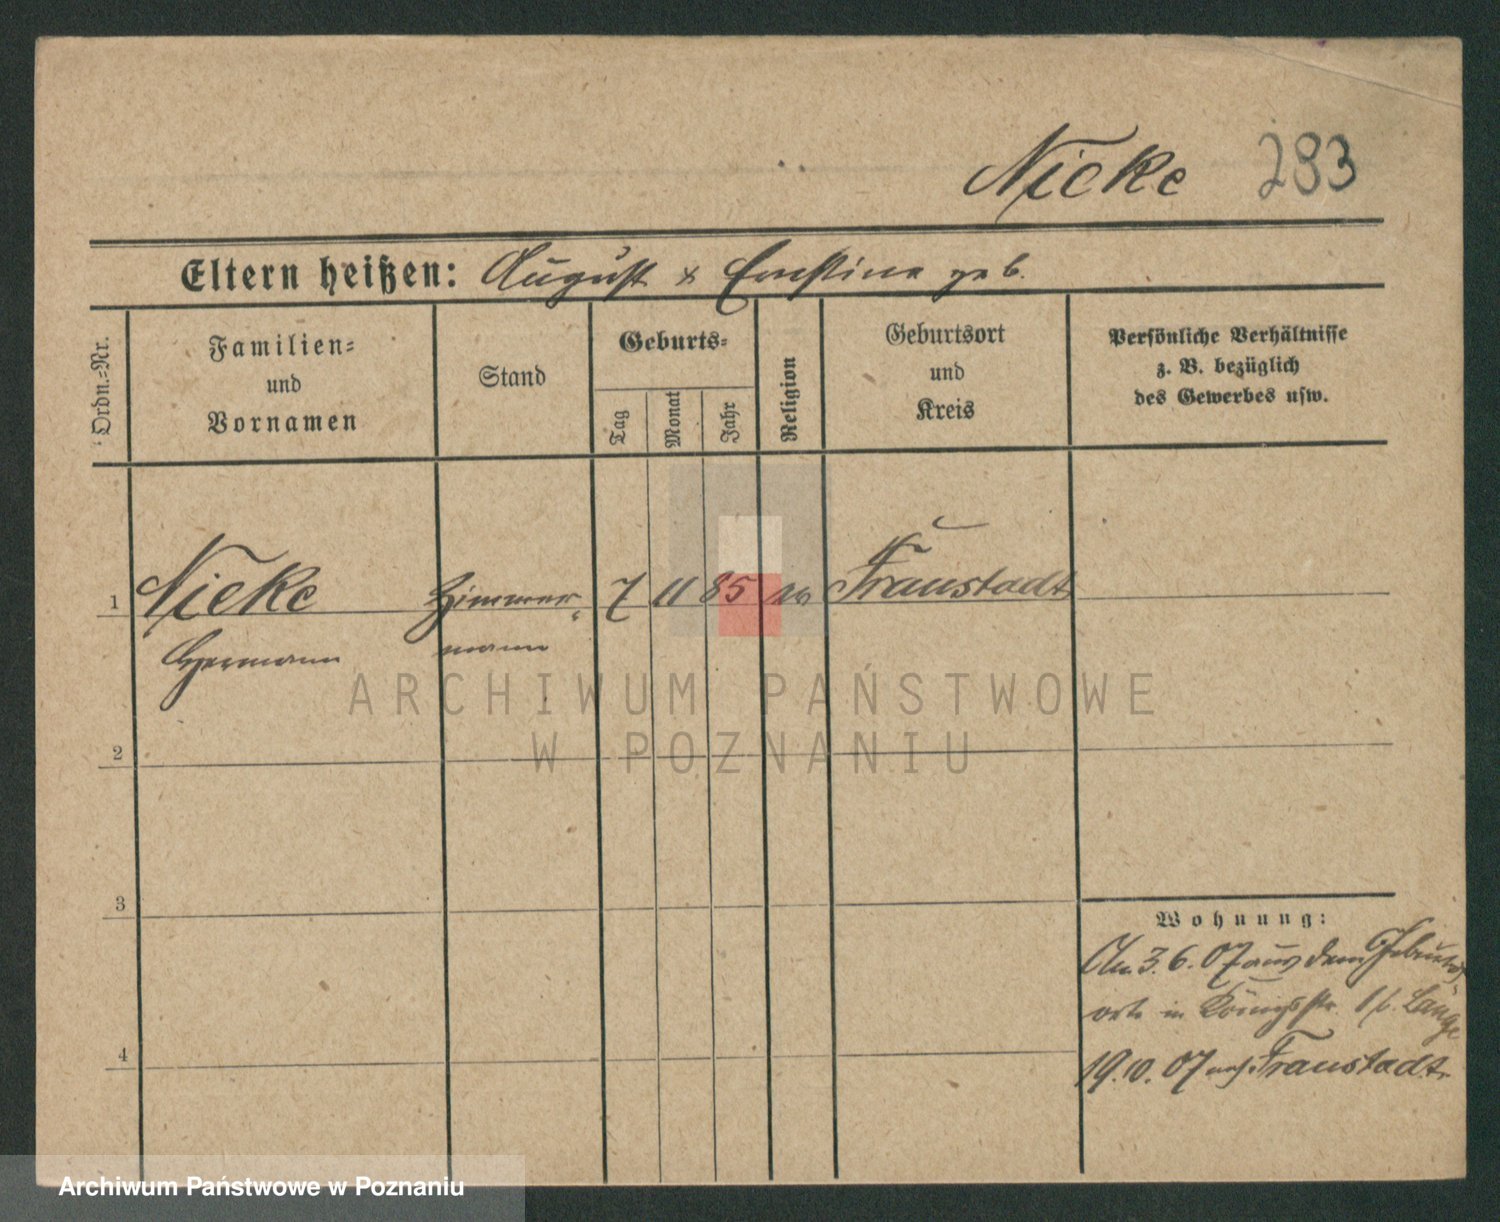 Nieke 283
Eltern heißen: August & Ernstine geb.
Ordn.-Nr.
Familien-
und
Vornamen
Stand
Geburts-
Tag
Monat
Jahr
Religion
Geburtsort
und
Kreis
Persönliche Verhältnisse
z. B. bezüglich
des Gewerbes usw.
1 Nieke Zimmer- 7 11 85 Fraustadt
Hermann mann
ARCHIWUM PAŃSTWOWE
W POZNANIU
2
3
Wohnung:
3.6.07 aus dem Geburts-
orte in Königsstr. Lange
4
19.10.07 nach Fraustadt
Archiwum Państwowe w Poznaniu